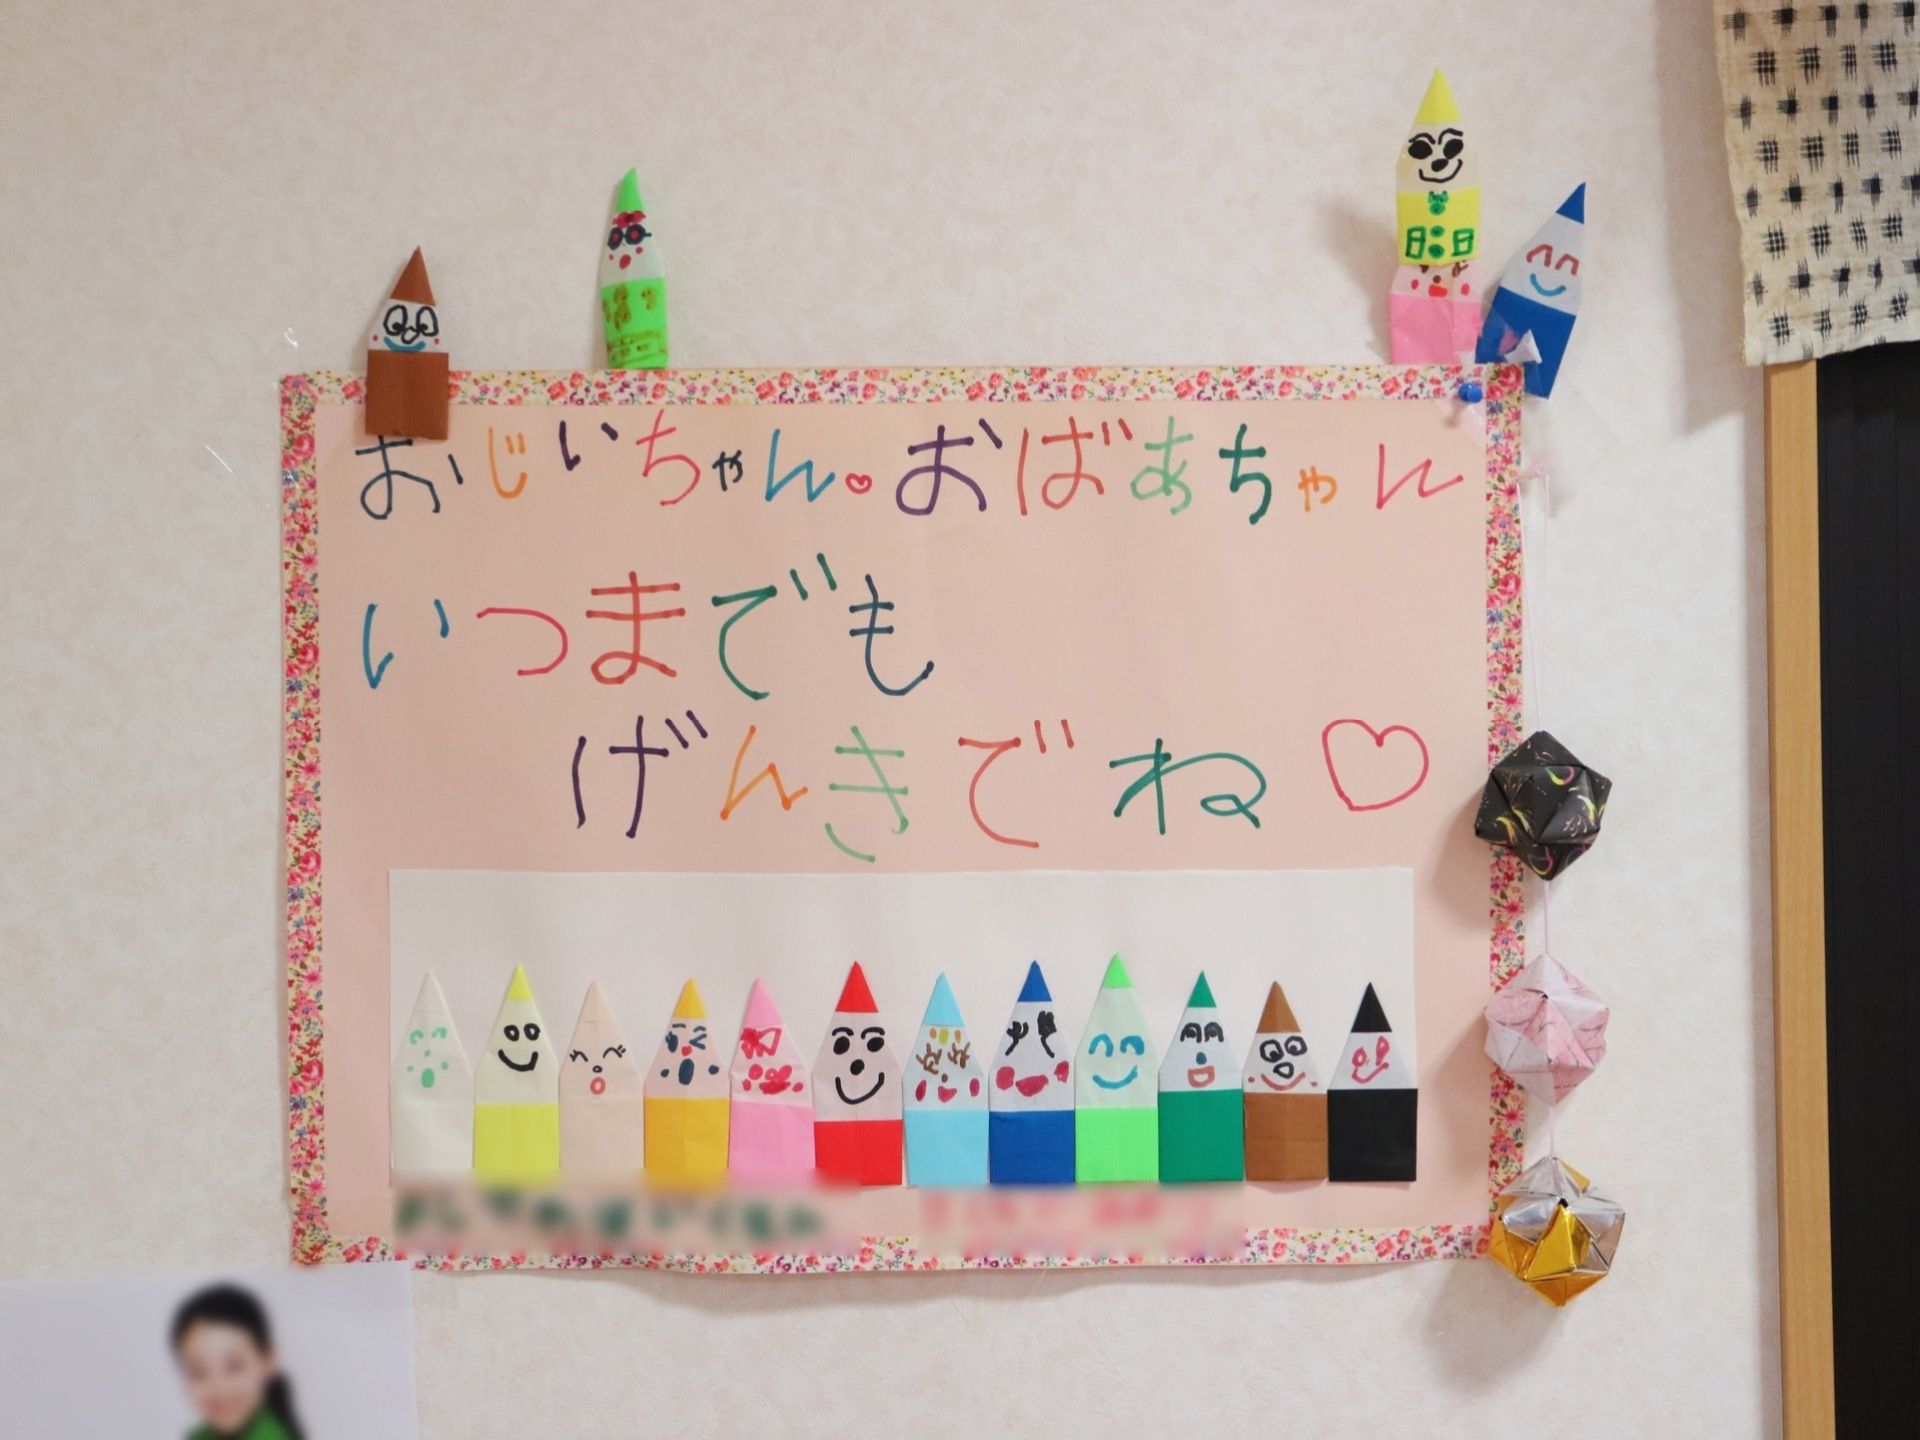 おじいちゃん♡おばあちゃん
いつまでも
げんきでね♡